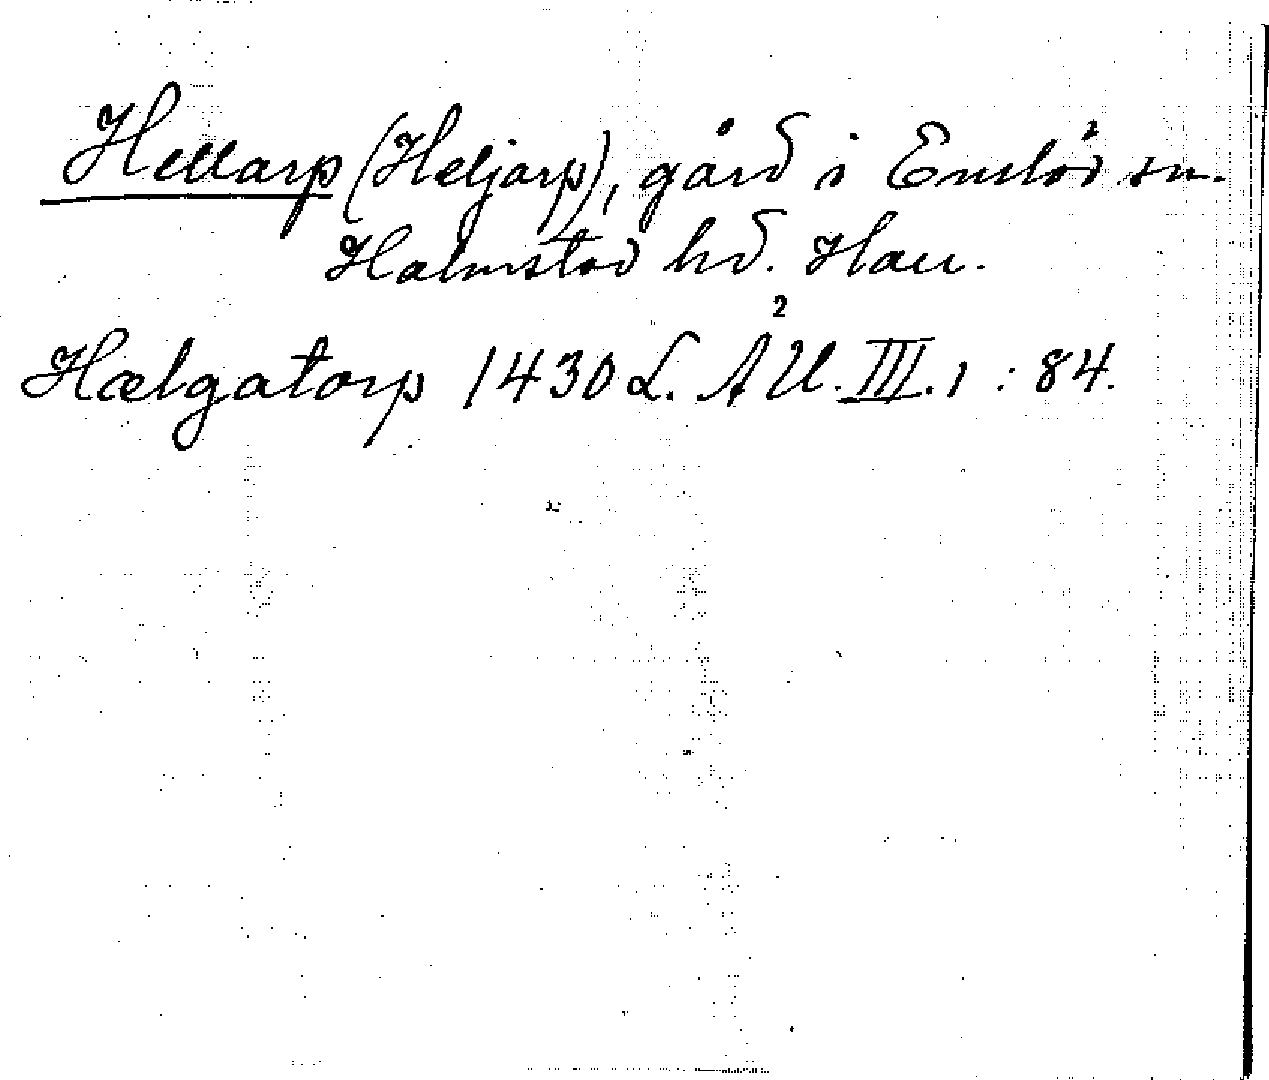 Hellarp (Heljarp), gård i Enslöv sn.
Halmstad hd. Hall.
Hælgatorp 1430 L. ÅU.² III. 1 : 84.